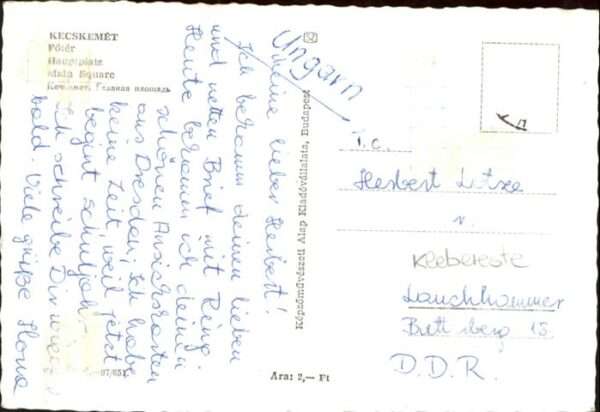 KECSKEMÉT
Főtér
Hauptplatz
Main Square
Кечкемет. Главная площадь
Ungarn
Meine lieber Herbert!
Ich bekamm deinen lieben
und netten Brief mit Ring.
Heute bekamm ich deinen
schönen Ansichtskarten
aus Dresden; Ich habe
keine Zeit, weil jetzt
begint schuljah-
Ich schreibe Dir
bald. Viele grüße Ilona
Képzőművészeti Alap Kiadóvállalata, Budapest
Ára: 2,— Ft
T.c.
Herbert Lotze
Klebereste
Lauchhammer
Brettberg 15
D.D.R.